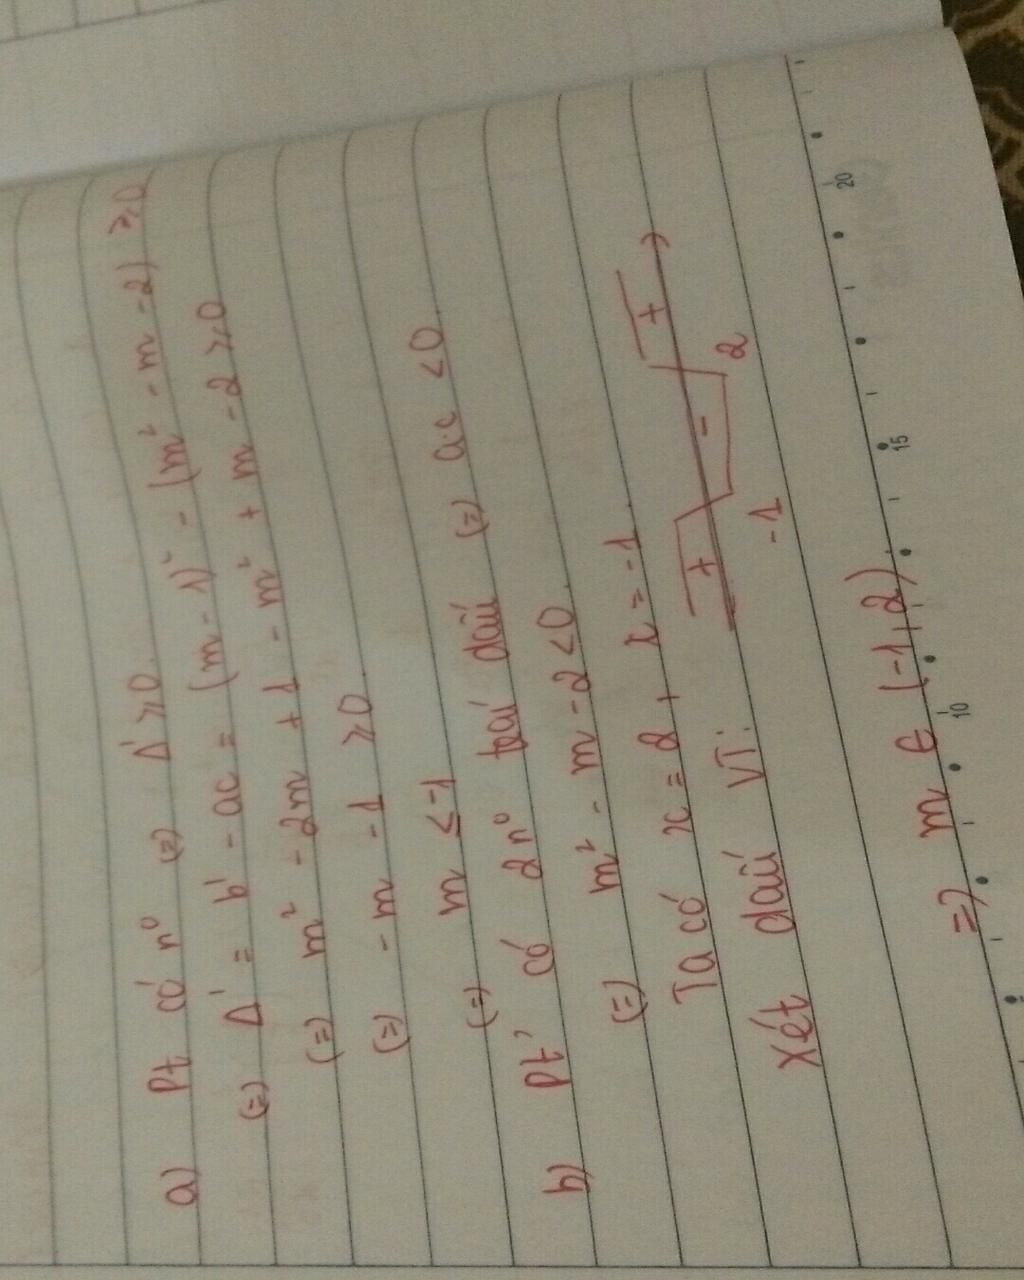 a) Pt có n° (=) Δ' ≥ 0.
(=) Δ' = b' - ac = (m - 1)² - (m² - m - 2) ≥ 0
(=) m² - 2m + 1 - m² + m - 2 ≥ 0
(=) - m - 1 ≥ 0
(=) m ≤ -1
b) Pt' có 2 n° trái dấu (=) a.c < 0
(=) m² - m - 2 < 0.
Ta có x = 2, x = -1
Xét dấu VT:
+ - +
-1 2
=> m ∈ (-1, 2).
10 15 20